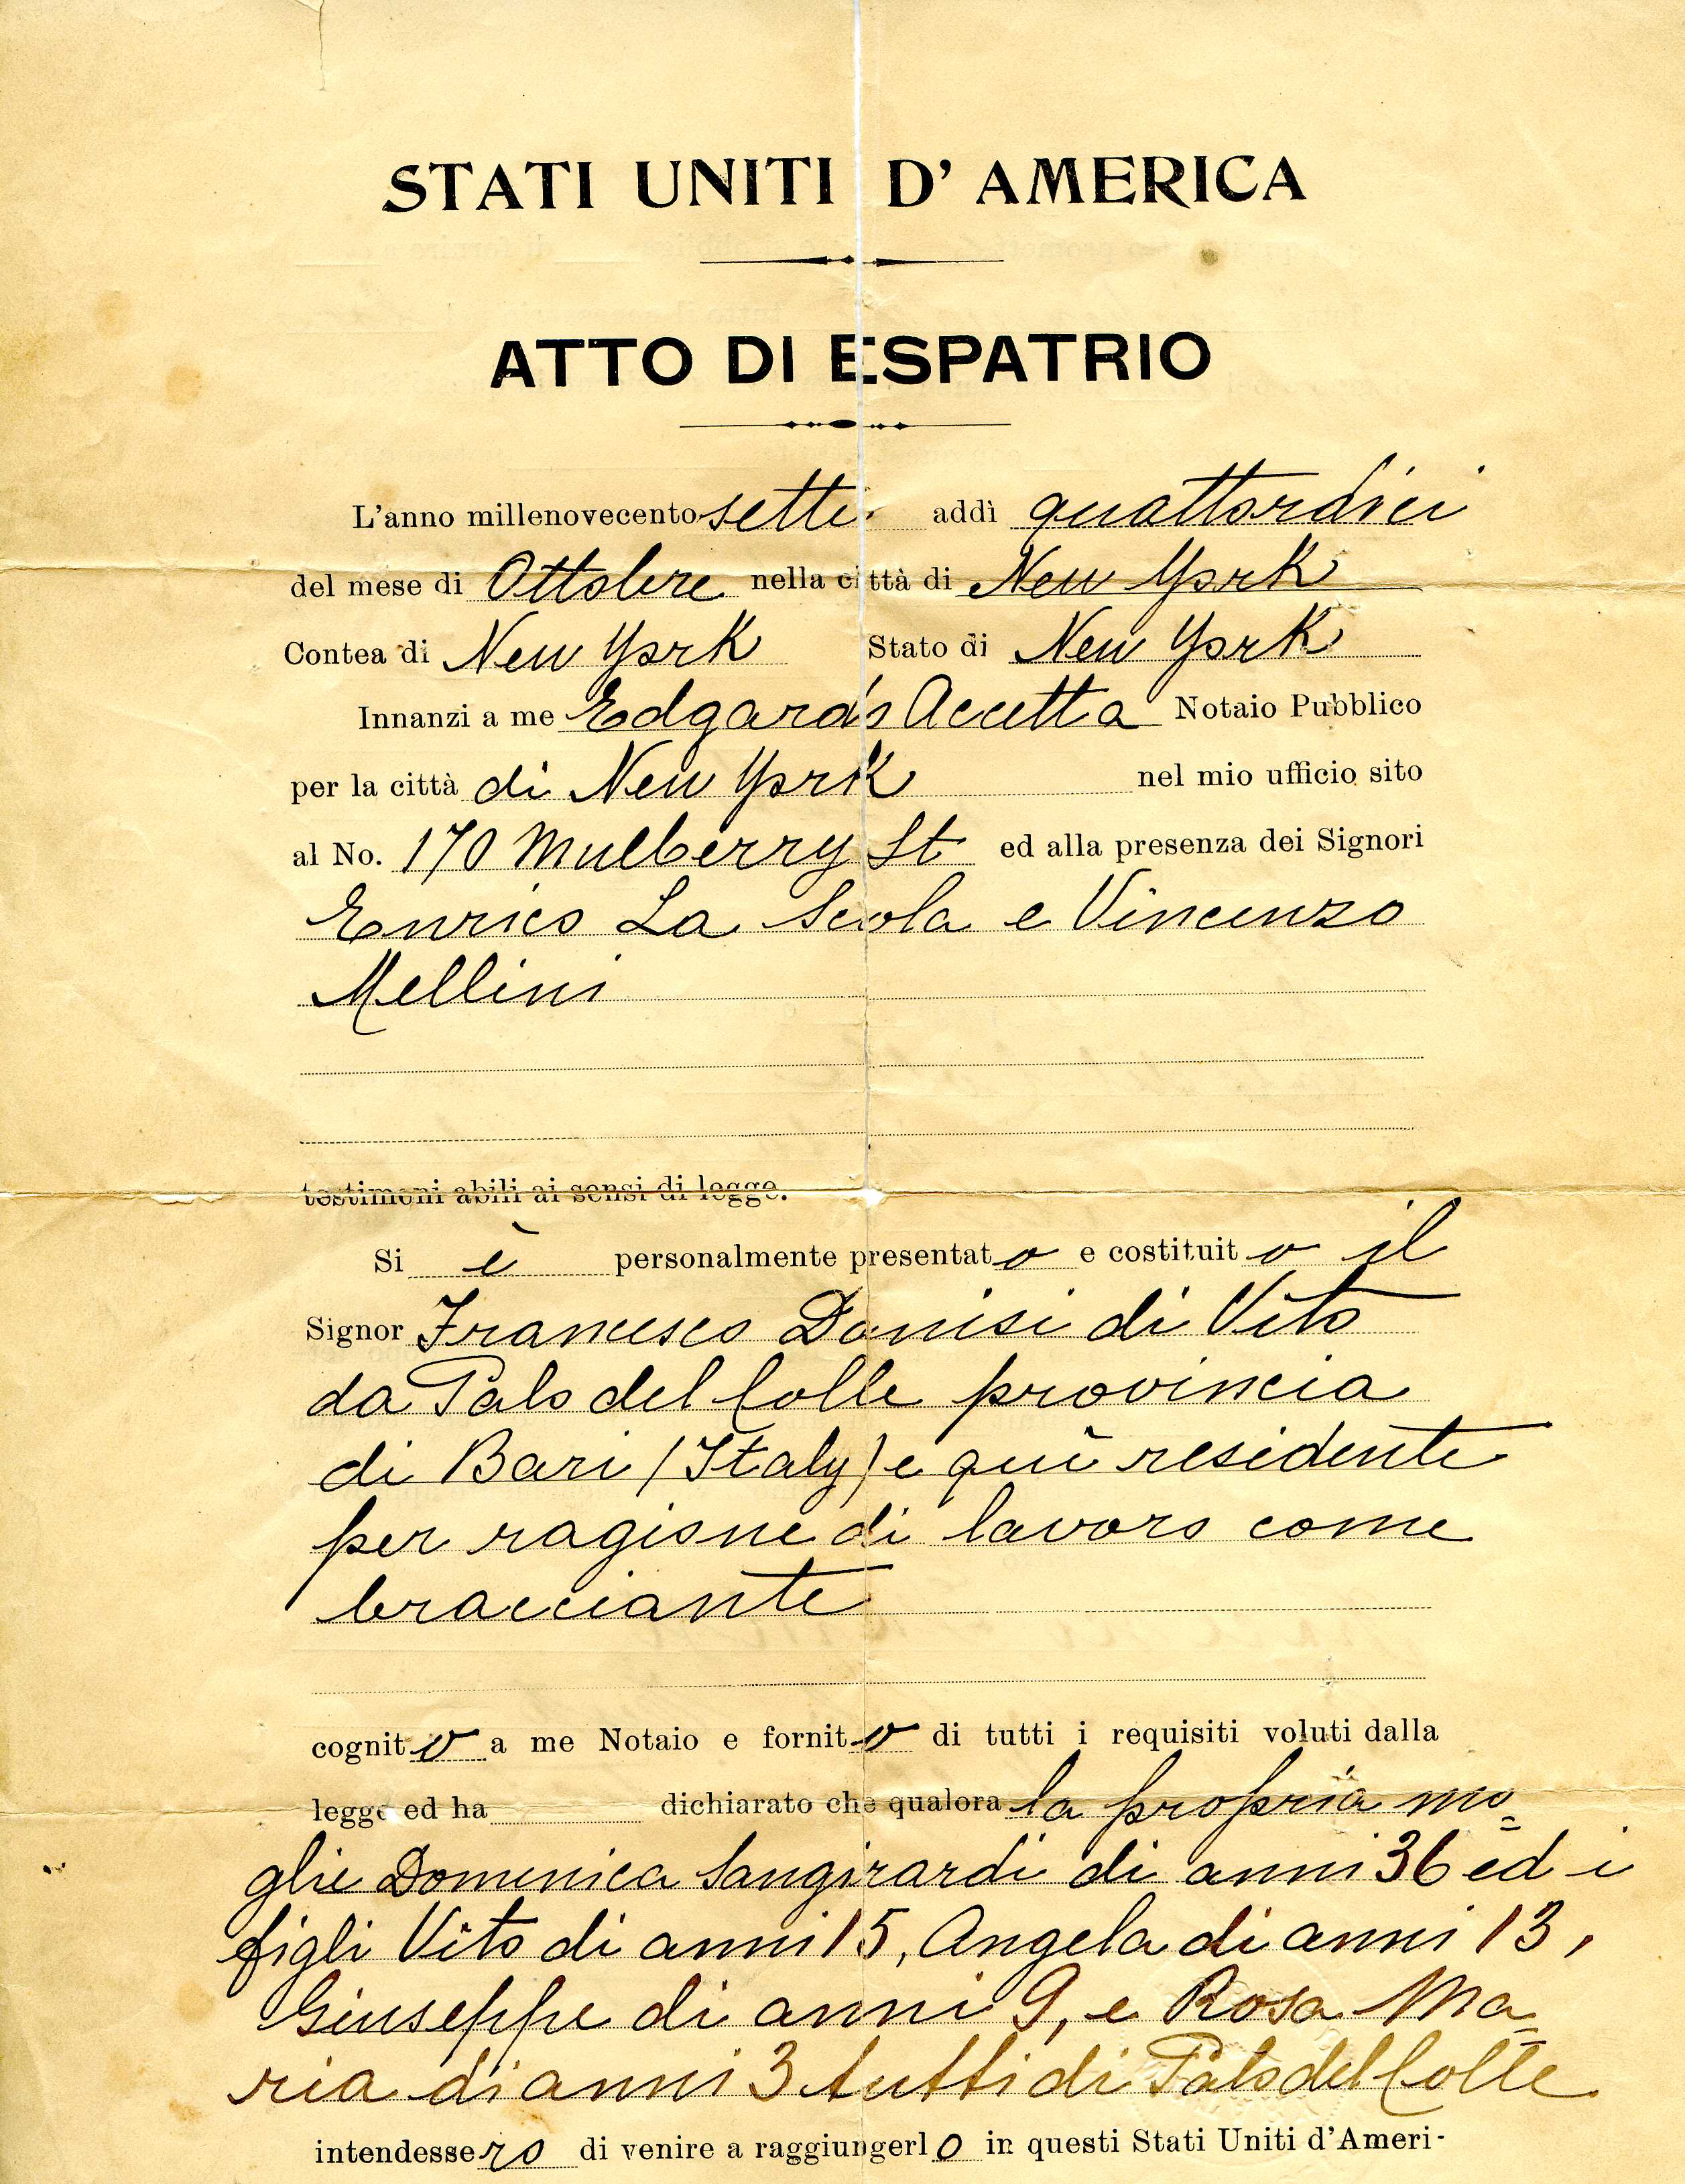 STATI UNITI D' AMERICA
ATTO DI ESPATRIO
L'anno millenovecento sette addì quattordici
del mese di Ottobre nella città di New York
Contea di New York Stato di New York
Innanzi a me Edgardo Accetta Notaio Pubblico
per la città di New York nel mio ufficio sito
al No. 170 Mulberry St ed alla presenza dei Signori
Enrico La Scola e Vincenzo
Mellini
testimoni abili ai sensi di legge.
Si è personalmente presentato e costituito il
Signor Francesco Danisi di Vito
da Palo del Colle provincia
di Bari (Italy) e quì residente
per ragione di lavoro come
bracciante
cognito a me Notaio e fornito di tutti i requisiti voluti dalla
legge ed ha dichiarato che qualora la propria mo=
glie Domenica Sangirardi di anni 36 ed i
figli Vito di anni 15, Angela di anni 13,
Giuseppe di anni 9, e Rosa Ma=
ria di anni 3 tutti di Palo del Colle
intendessero di venire a raggiungerlo in questi Stati Uniti d'Ameri-